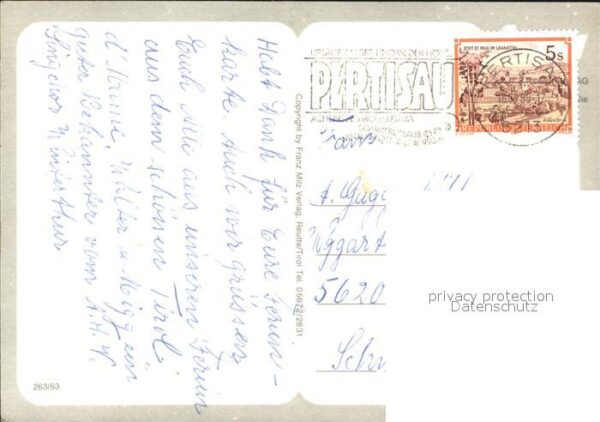 Habt Dank für Eure Ferien-
karte. Auch wir grüssen
Euch Alle aus unseren Ferien
aus dem schönen Tirol
d'Mami, Walter u Migg ein
guter Bekannter vom A.H.V.
Winterthur
263/63
Copyright by Franz Milz Verlag, Reutte/Tirol Tel. 05672/2831
PERTISAU
STIFT ST. PAUL IM LAVANTTAL
5s
PERTISAU
A. Gug
5620
privacy protection
Datenschutz